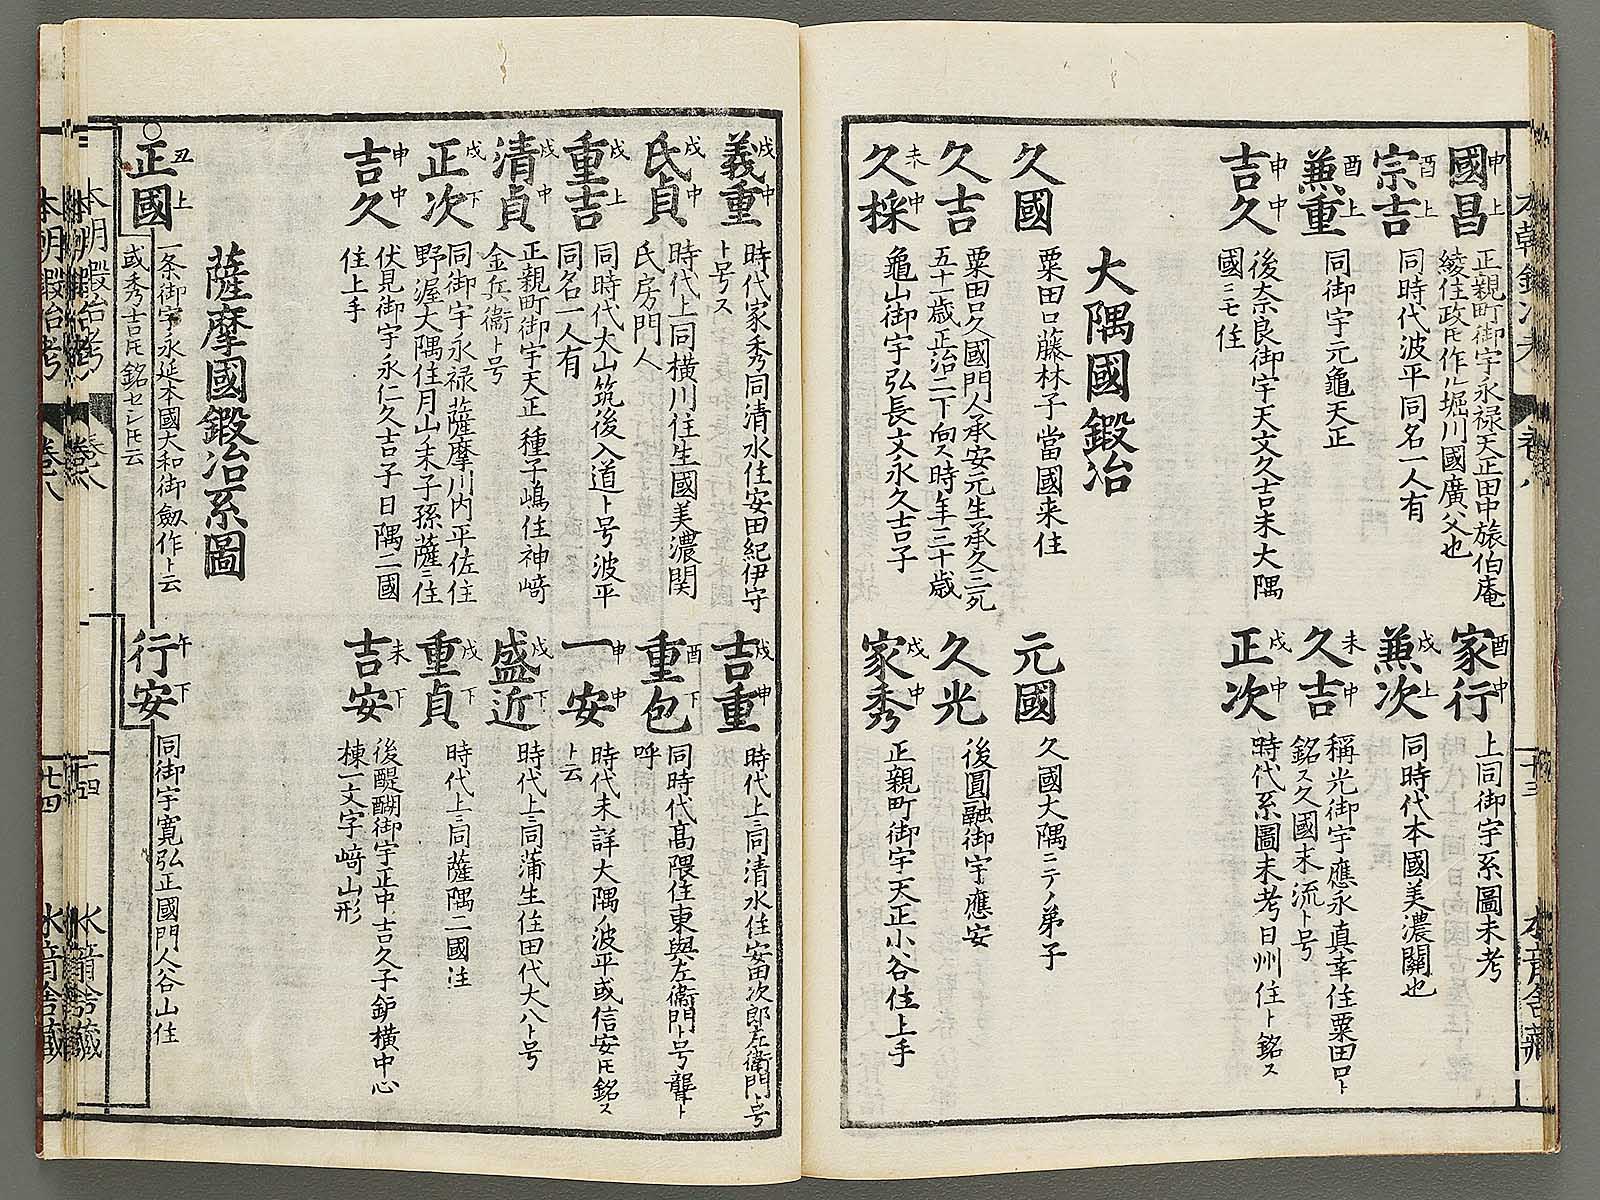 國昌 申上
正親町御宇永禄天正田中旅伯庵
綾住政ト乇作ル堀川國廣父也
宗吉 酉上
同時代波平同名一人有
兼重 酉上
同御宇元龜天正
吉久 申中
後奈良御宇天文久吉末大隅
國ニモ住
家行 酉中
上同御宇系圖未考
兼次 戌上
同時代本國美濃關也
久吉 未中
稱光御宇應永真幸住粟田口ト
銘ス久國末流ト号
正次 戌中
時代系圖未考日州住ト銘ス
大隅國鍛冶
久國
粟田口藤林子當國来住
久吉
粟田口久國門人承安元生承久三死
五十一歳正治二下向ス時年三十歳
久採 未中
龜山御宇弘長文永久吉子
元國
久國大隅ニテノ弟子
久光
後圓融御宇應安
家秀 戌中
正親町御宇天正小谷住上手
義重 戌中
時代家秀同清水住安田紀伊守
ト号ス
氏貞 戌中
時代上同横川住生國美濃関
氏房門人
重吉 戌上
同時代大山筑後入道ト号波平
同名一人有
清貞 戌中
正親町御宇天正種子嶋住神﨑
金兵衛ト号
正次 戌下
同御宇永禄薩摩川内平佐住
野渥大隅住月山末子孫薩ニ住
吉久 申中
伏見御宇永仁久吉子日隅二國
住上手
吉重 戌中
時代上ニ同清水住安田次郎左衛門ト号
重包 酉下
同時代髙隈住東與左衛門ト号聾ト
呼
一安 申中
時代未詳大隅ノ波平或信安ト乇銘ス
ト云
盛近 戌下
時代上ニ同蒲生住田代大八ト号
重貞 戌下
時代上ニ同薩隅二國住
吉安 未下
後醍醐御宇正中吉久子鈩横中心
棟一文字﨑山形
薩摩國鍛冶系圖
○正國 丑上
一条御宇永延本國大和御剱作ト云
或秀吉ト乇銘セシト乇云
行安 午下
同御宇寛弘正國門人谷山住
本朝鍛冶考
巻八
水音舎藏